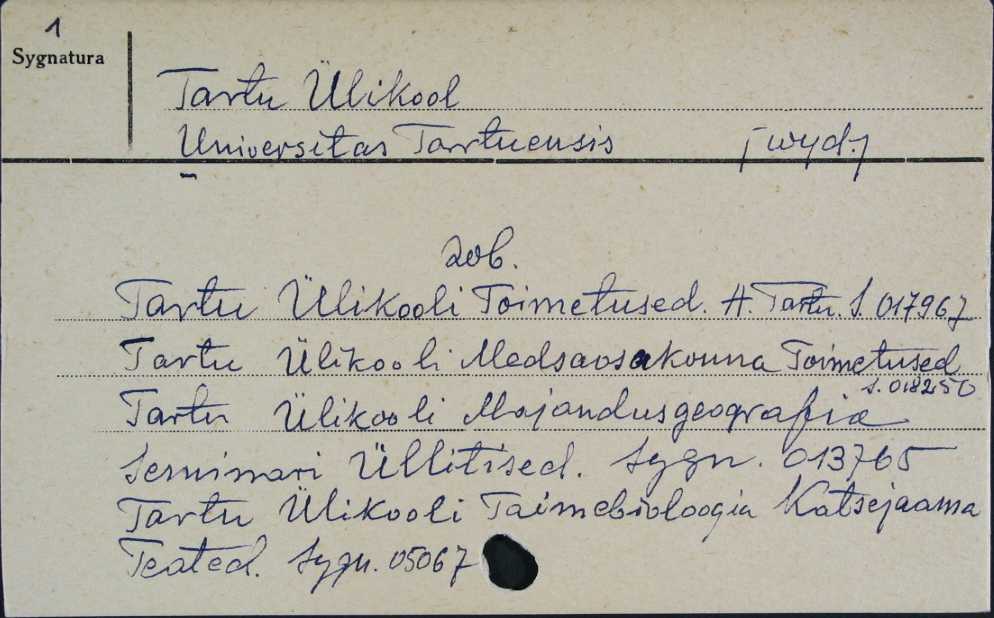 1
Sygnatura
Tartu Ülikool
Universitas Tartuensis [wyd.]
zob.
Tartu Ülikooli Toimetused. A. Tartu. S. 017967
Tartu Ülikooli Medsaosakonna Toimetused
S. 018250
Tartu Ülikooli Majandusgeografia
Seminari Üllitised. Sygn. 013765
Tartu Ülikooli Taimebioloogia Katsejaama
Teated. Sygn. 05067